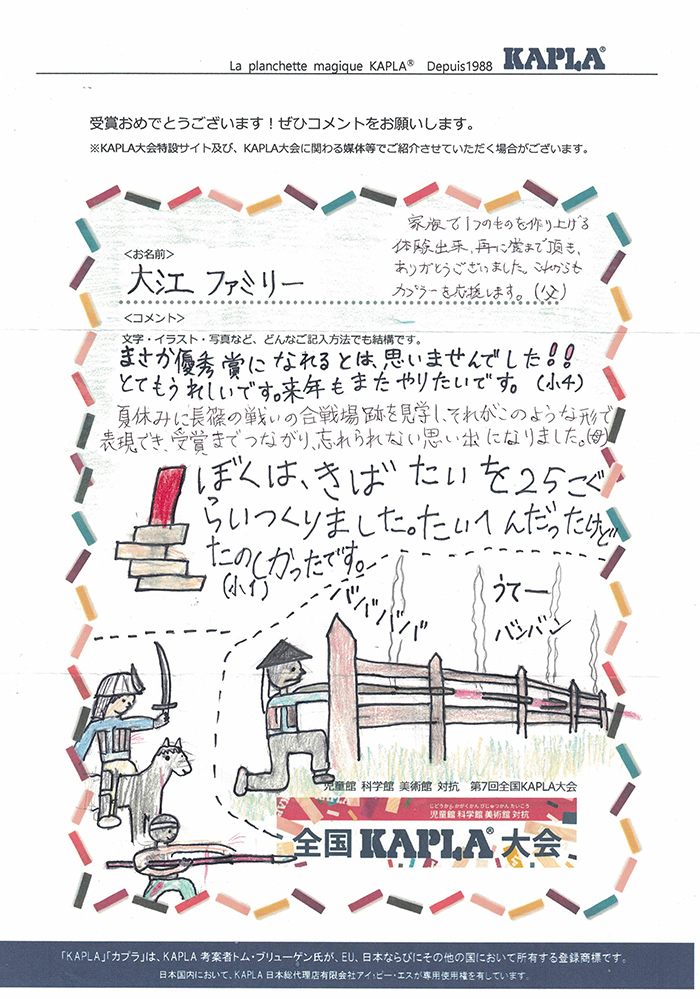 La planchette magique KAPLA® Depuis1988 KAPLA®
受賞おめでとうございます！ぜひコメントをお願いします。
※KAPLA大会特設サイト及び、KAPLA大会に関わる媒体等でご紹介させていただく場合がございます。
家族で1つのものを作り上げる
体験出来、再に賞まで頂き、
ありがとうございました。これからも
カプラーを応援します。(父)
<お名前>
大江 ファミリー
<コメント>
文字・イラスト・写真など、どんなご記入方法でも結構です。
まさか優秀賞になれるとは、思いませんでした!!
とてもうれしいです。来年もまたやりたいです。 (小4)
夏休みに長篠の戦いの合戦場跡を見学し、それがこのような形で
表現でき、受賞までつながり、忘れられない思い出になりました。(母)
ぼくは、きばたいを25こぐ
らいつくりました。たいへんだったけど
たのしかったです。
(小1)
バババババ
うてー
バンバン
児童館 科学館 美術館 対抗 第7回全国KAPLA大会
じどうかん かがくかん びじゅつかん たいこう
児童館 科学館 美術館 対抗
全国 KAPLA® 大会
「KAPLA」「カプラ」は、KAPLA 考案者トム・ブリューゲン氏が、EU、日本ならびにその他の国において所有する登録商標です。
日本国内において、KAPLA 日本総代理店有限会社アイ・ピー・エスが専用使用権を有しています。